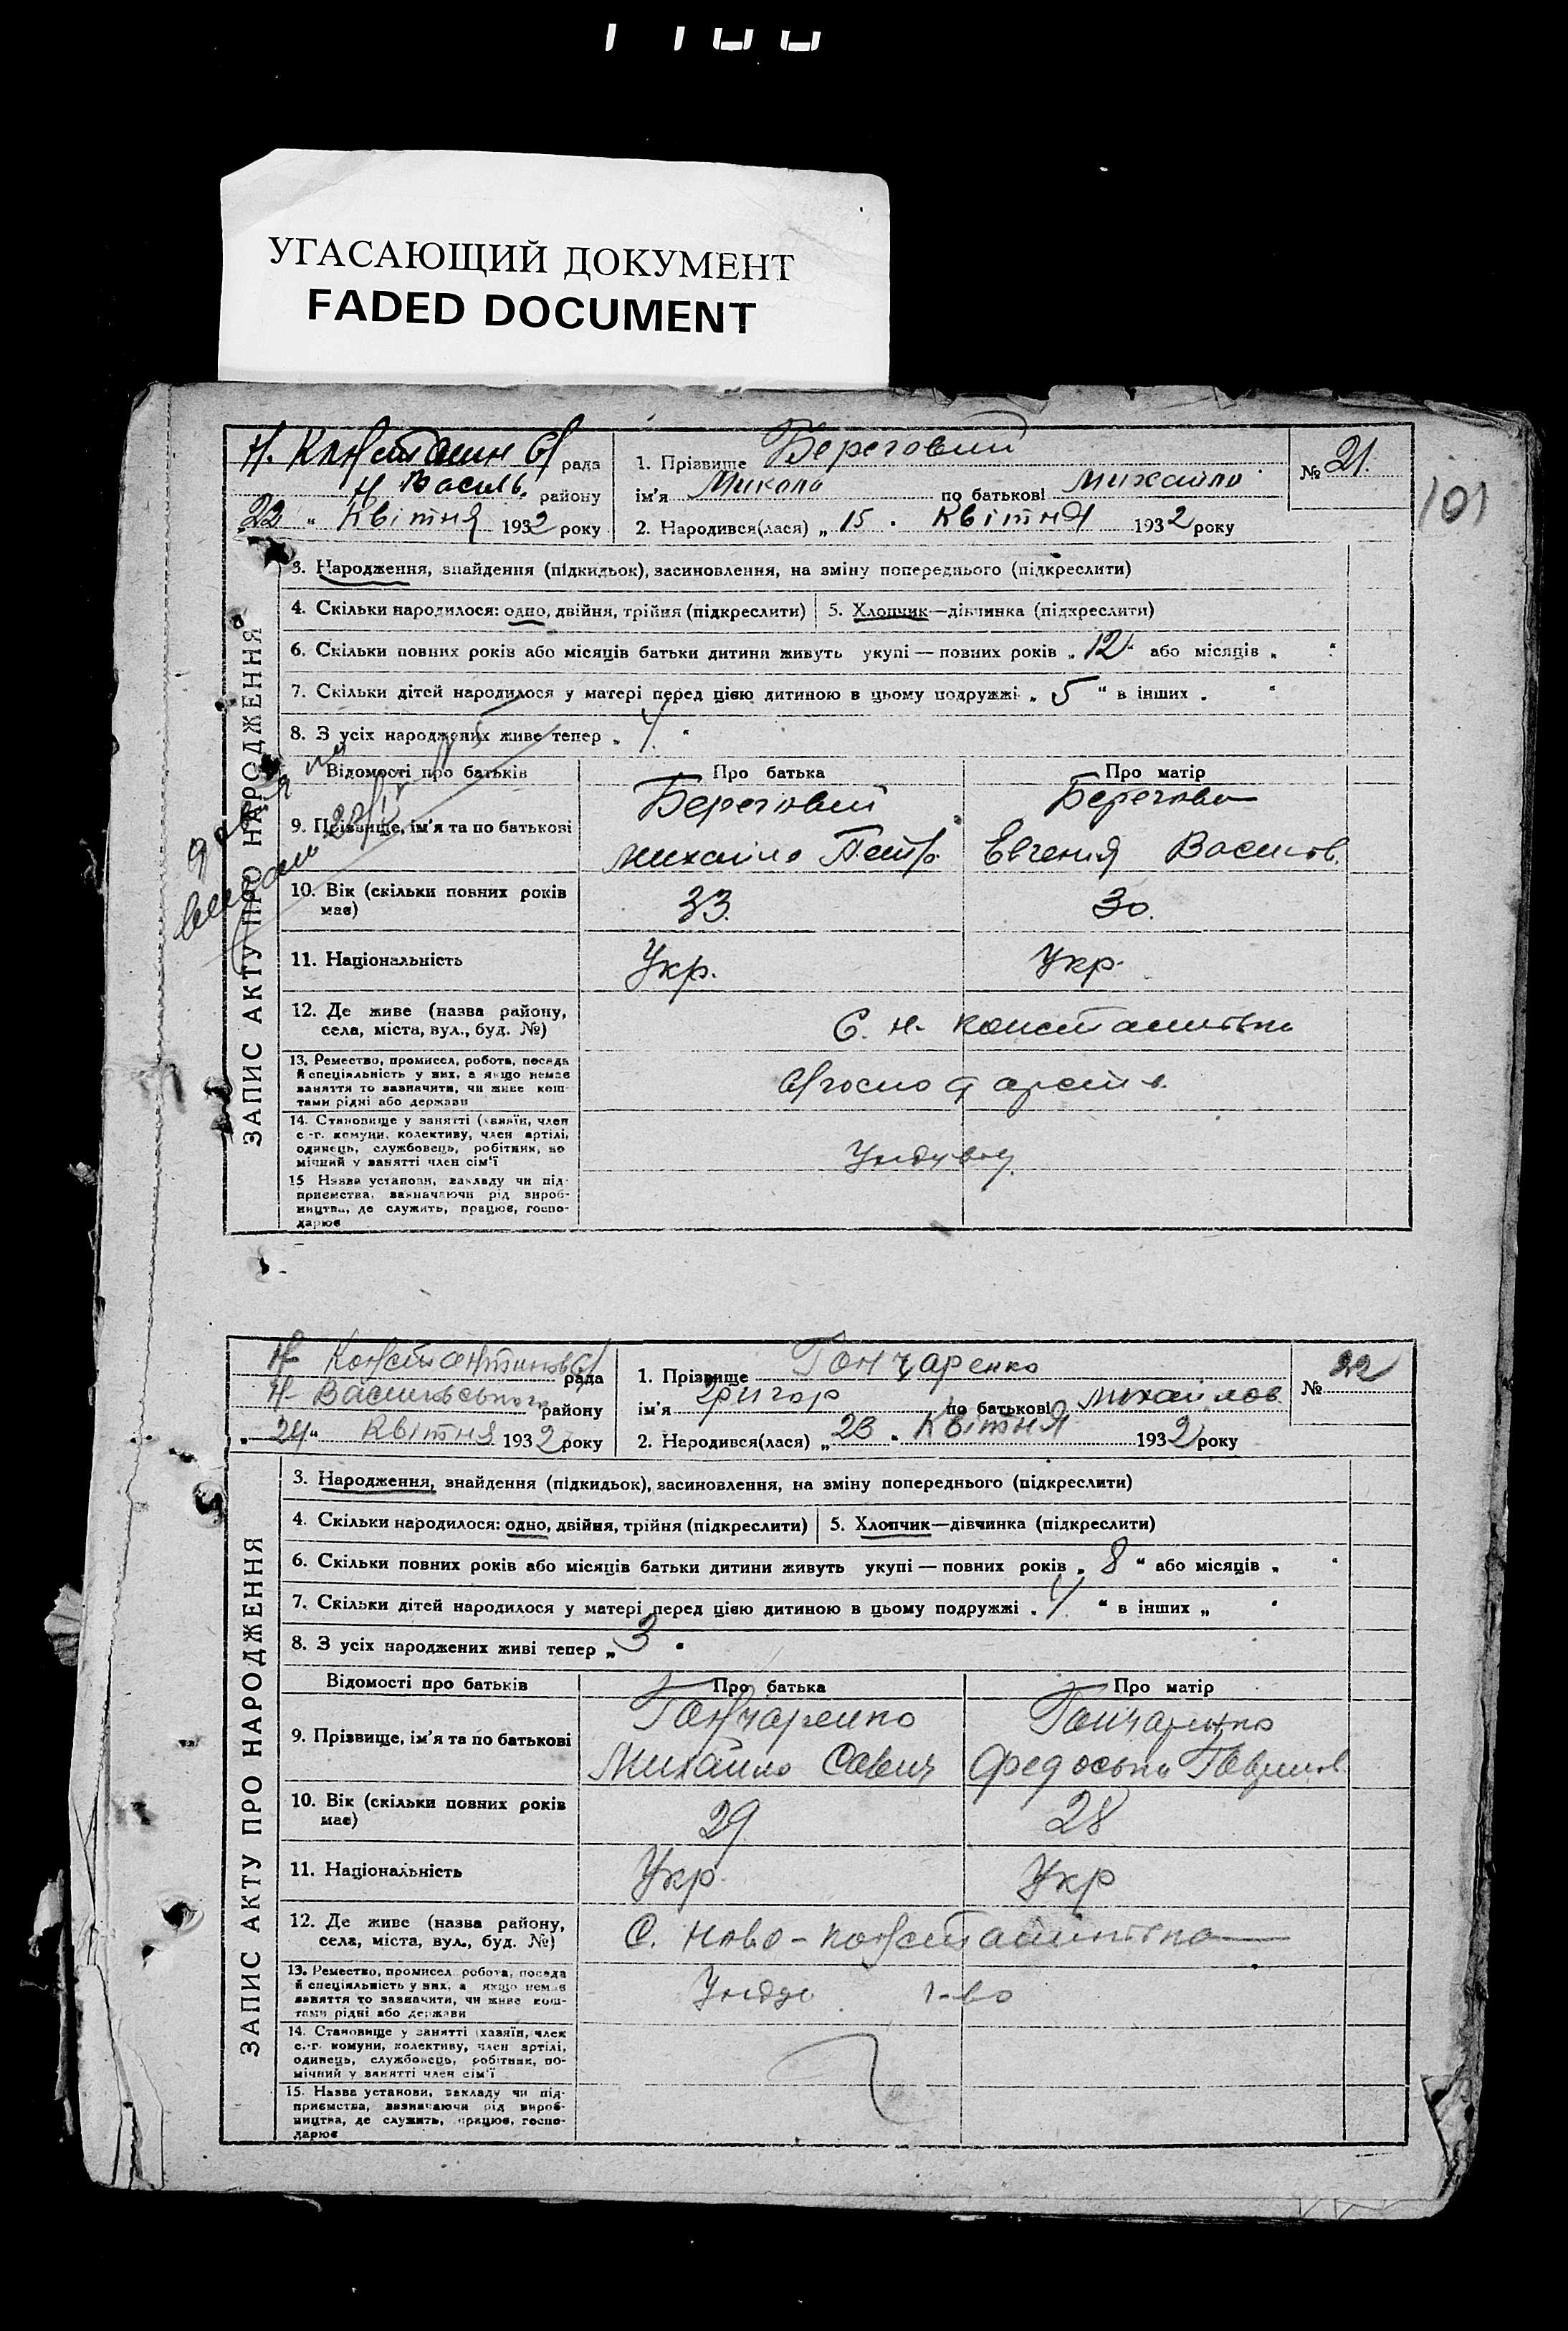 УГАСАЮЩИЙ ДОКУМЕНТ
FADED DOCUMENT
101
рада
Н. Василь. району
„22“ Квітня 1932 року
1. Прізвище Береговий
ім'я Микола по батькові Михайло
2. Народився(лася) „15“ Квітня 1932 року
№ 21.
ЗАПИС АКТУ ПРО НАРОДЖЕННЯ
3. Народження, знайдення (підкидьок), засиновлення, на зміну попереднього (підкреслити)
4. Скільки народилося: одно, двійня, трійня (підкреслити) 5. Хлопчик—дівчинка (підкреслити)
6. Скільки повних років або місяців батьки дитини живуть укупі — повних років „12“ або місяців „ “
7. Скільки дітей народилося у матері перед цією дитиною в цьому подружжі „5“ в інших „ “
8. З усіх народжених живе тепер „4“
Відомості про батьків Про батька Про матір
9. Прізвище, ім'я та по батькові Береговий Берегова
Михайло Петр. Евгения Васильов.
10. Вік (скільки повних років має) 33. 30.
11. Національність Укр. Укр.
12. Де живе (назва району,
села, міста, вул., буд. №) С. Н-
13. Ремество, промисел, робота, посада
й спеціяльність у них, а якщо немає
заняття то зазначити, чи живе кош-
тами рідні або держави
14. Становище у занятті (хазяїн, член
с.-г. комуни, колективу, член артілі,
одинець, службовець, робітник, по
мічний у занятті член сім'ї
15 Назва установи, закладу чи під-
приємства, зазначаючи рід вироб-
ництва, де служить, працює, госпо-
дарює
рада
Н- Васильвського району
„24“ Квітня 1932 року
1. Прізвище Гончаренко
ім'я Григор по батькові Михайлов.
2. Народився(лася) „23“ Квітня 1932 року
№ 22
ЗАПИС АКТУ ПРО НАРОДЖЕННЯ
3. Народження, знайдення (підкидьок), засиновлення, на зміну попереднього (підкреслити)
4. Скільки народилося: одно, двійня, трійня (підкреслити) 5. Хлопчик—дівчинка (підкреслити)
6. Скільки повних років або місяців батьки дитини живуть укупі — повних років „8“ або місяців „ “
7. Скільки дітей народилося у матері перед цією дитиною в цьому подружжі „4“ в інших „ “
8. З усіх народжених живі тепер „3“
Відомості про батьків Про батька Про матір
9. Прізвище, ім'я та по батькові Гончаренко Гончаренко
Михайло Савич Федоська Гаврилов.
10. Вік (скільки повних років має) 29 28
11. Національність Укр. Укр
12. Де живе (назва району,
села, міста, вул., буд. №) С. Ново-
13. Ремество, промисел робота, посада
й спеціяльність у них, а якщо немає
заняття то зазначити, чи живе кош-
тами рідні або держави
14. Становище у занятті (хазяїн, член
с.-г. комуни, колективу, член артілі,
одинець, службовець, робітник, по-
мічний у занятті член сім'ї
15. Назва установи, закладу чи під-
приємства, зазначаючи рід вироб-
ництва, де служить, працює, госпо-
дарює